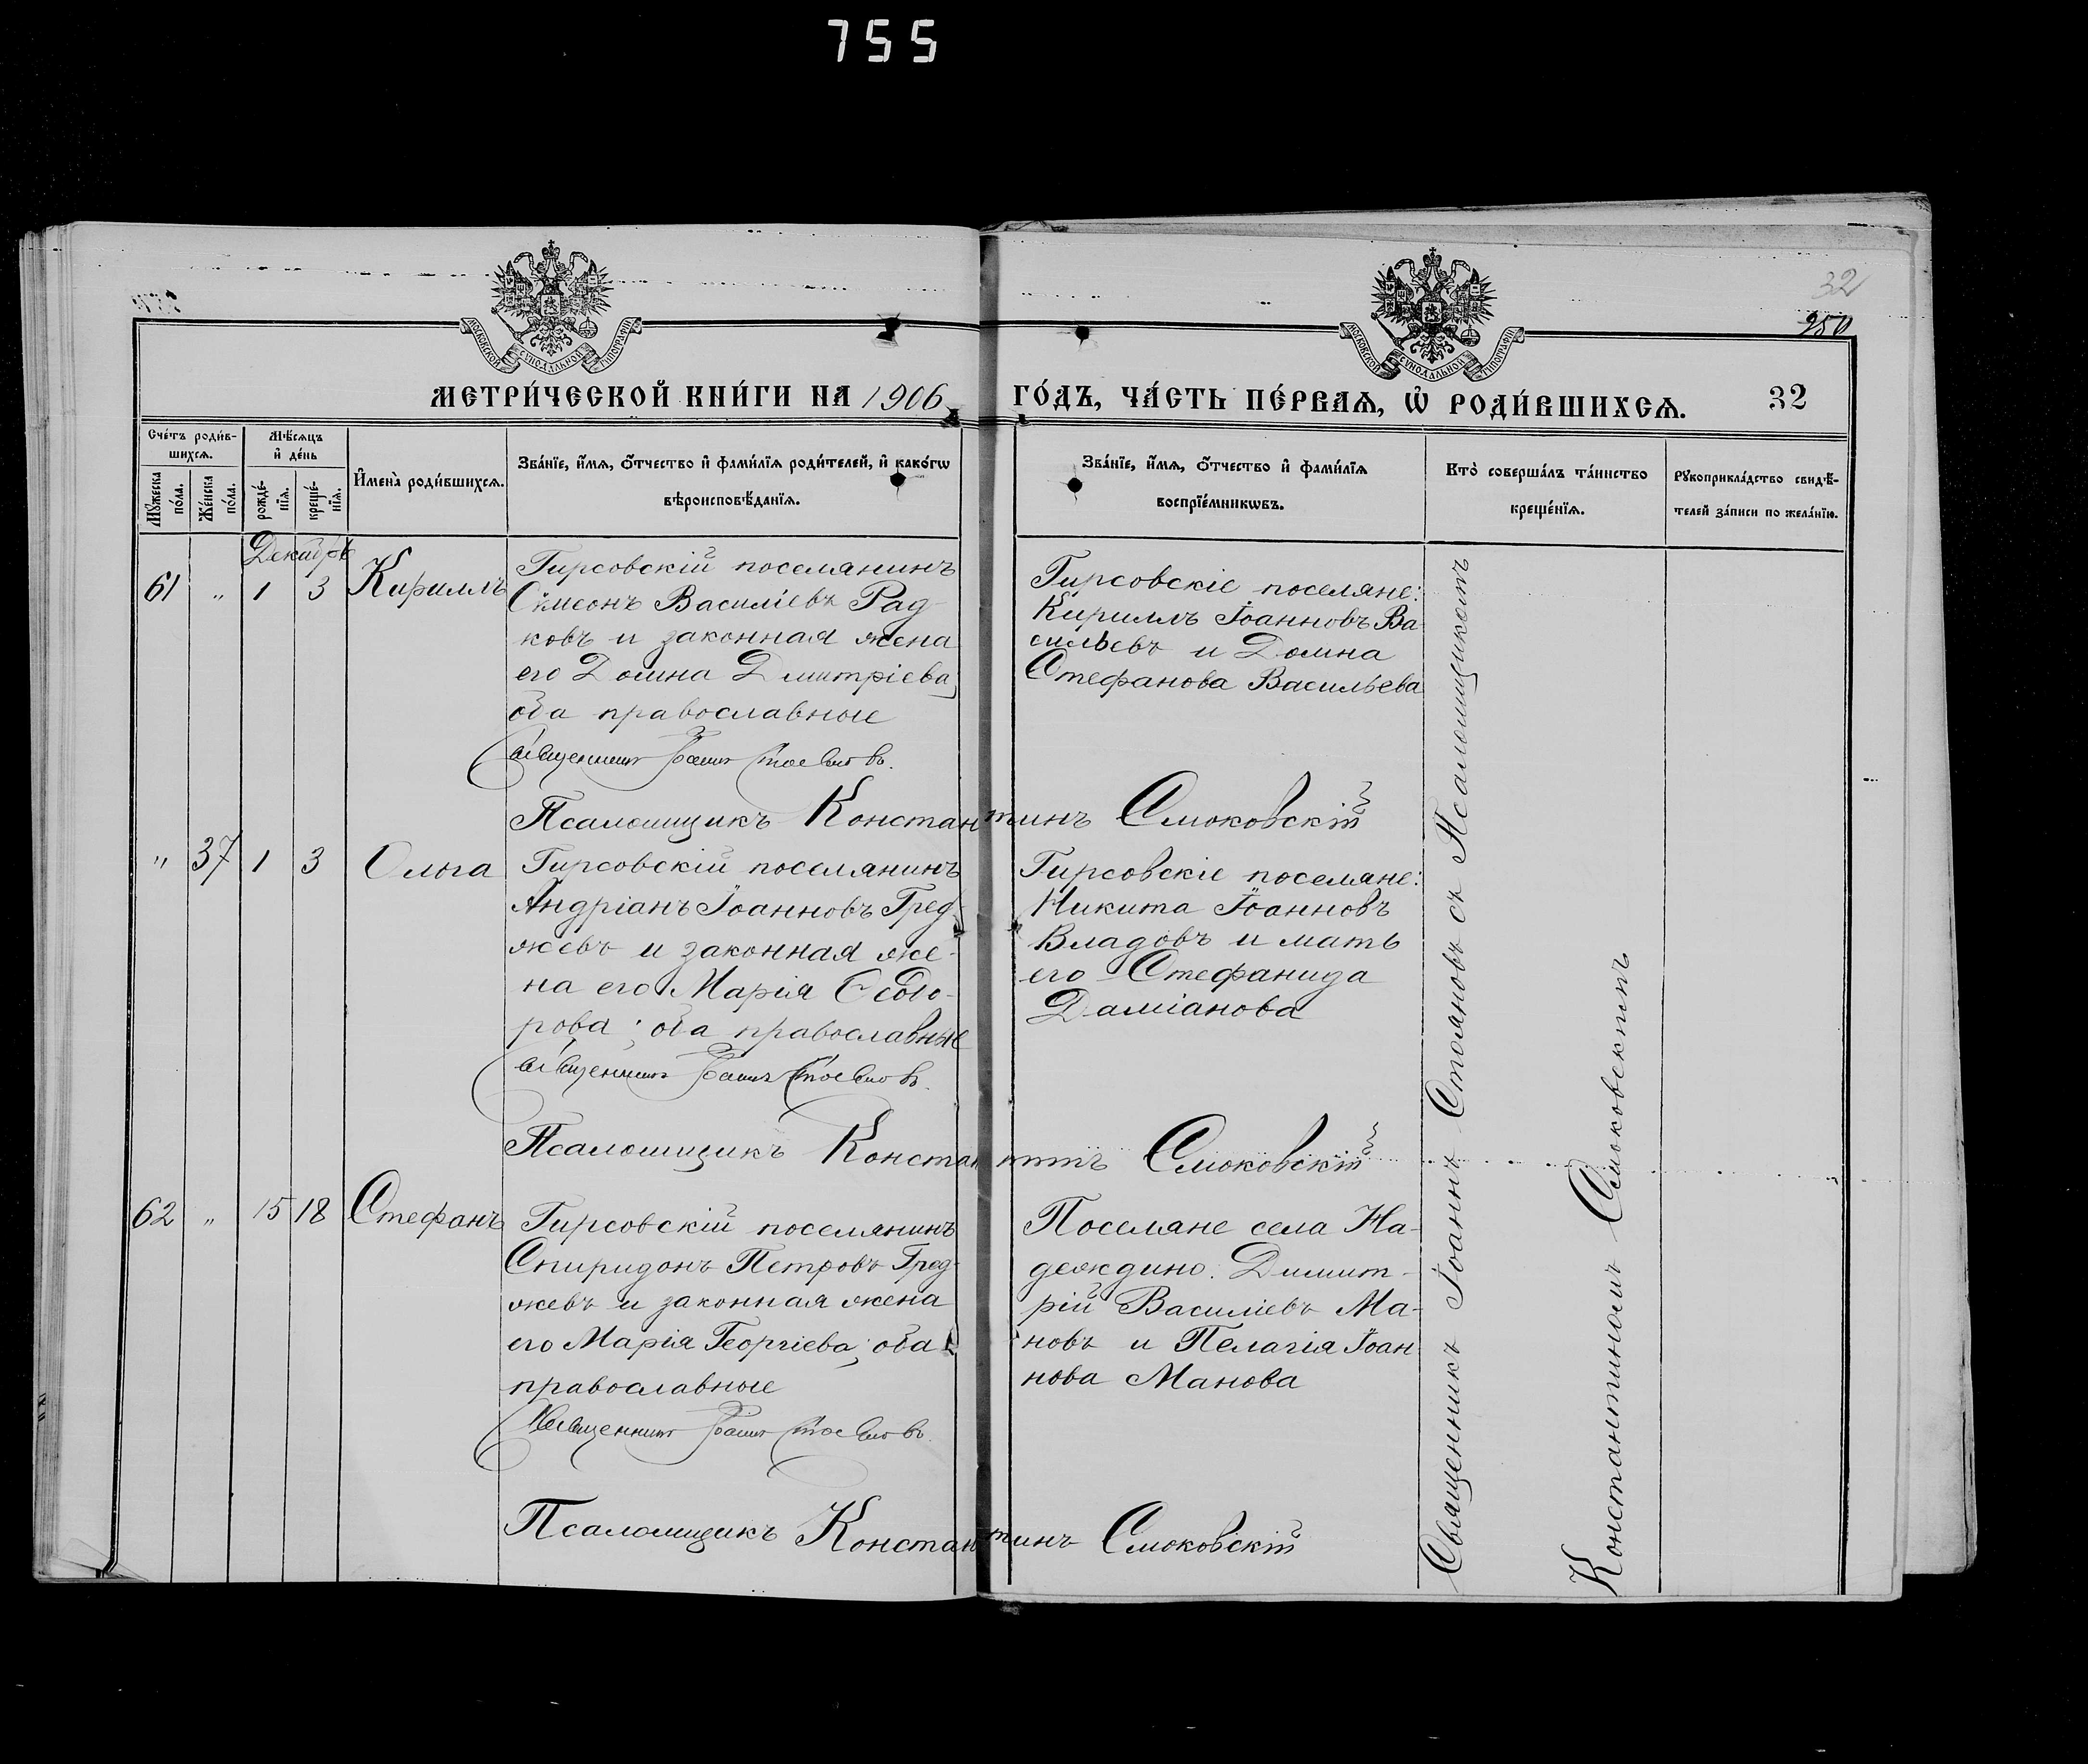 755
МОСКОВСКОЙ СУНОДАЛЬНОЙ ТИПОГРАФІИ
МОСКОВСКОЙ СУНОДАЛЬНОЙ ТИПОГРАФІИ
32
250
МЕТРИ́ЧЕСКОЙ КНИ́ГИ НА 1906 ГО́ДЪ, ЧА́СТЬ ПЕ́РВАѦ, Ѽ РОДИ́ВШИХСѦ. 32
Сче́тъ роди́в-
шихсѧ.
Мꙋ́жеска по́ла.
Же́нска по́ла.
Мѣ́сѧцъ
и҆ де́нь
рожде́-
нїѧ.
креще́-
нїѧ.
И҆мена̀ роди́вшихсѧ.
Зва́нїе, и҆́мѧ, ѻ҆́тчество и҆ фами́лїѧ роди́телей, и҆ како́гѡ
вѣроисповѣ́данїѧ.
Зва́нїе, и҆́мѧ, ѻ҆́тчество и҆ фами́лїѧ
воспрїе́мникѡвъ.
Кто̀ соверша́лъ та́инство
креще́нїѧ.
Рꙋкоприкла́дство свидѣ́-
телей за́писи по жела́нїю.
Декабрь
61 " 1 3 Кириллъ
Гирсовскій поселянинъ
Симеонъ Василіевъ Рад-
ковъ и законная жена
его Домна Димитріева,
оба православные
Священникъ Іоаннъ Стояновъ.
Гирсовскіе поселяне:
Кириллъ Іоанновъ Ва
сильевъ и Домна
Стефанова Васильева
Псаломщикъ Константинъ Смоковскій
" 37 1 3 Ольга
Гирсовскій поселянинъ
Андріанъ Іоанновъ Гред-
жевъ и законная же-
на его Марія Ѳеодо-
рова; оба православные
Священникъ Іоаннъ Стояновъ.
Гирсовскіе поселяне:
Никита Іоанновъ
Владовъ и мать
его Стефанида
Даміанова
Псаломщикъ Константинъ Смоковскій
62 " 15 18 Стефанъ
Гирсовскій поселянинъ
Спиридонъ Петровъ Гред-
жевъ и законная жена
его Марія Георгіева; оба
православные
Священникъ Іоаннъ Стояновъ.
Поселяне села На-
деждино: Димит-
рій Василіевъ Ма-
новъ и Пелагія Іоан
нова Манова
Псаломщикъ Константинъ Смоковскій
Священникъ Іоаннъ Стояновъ съ Псаломщикомъ
Константиномъ Смоковскимъ